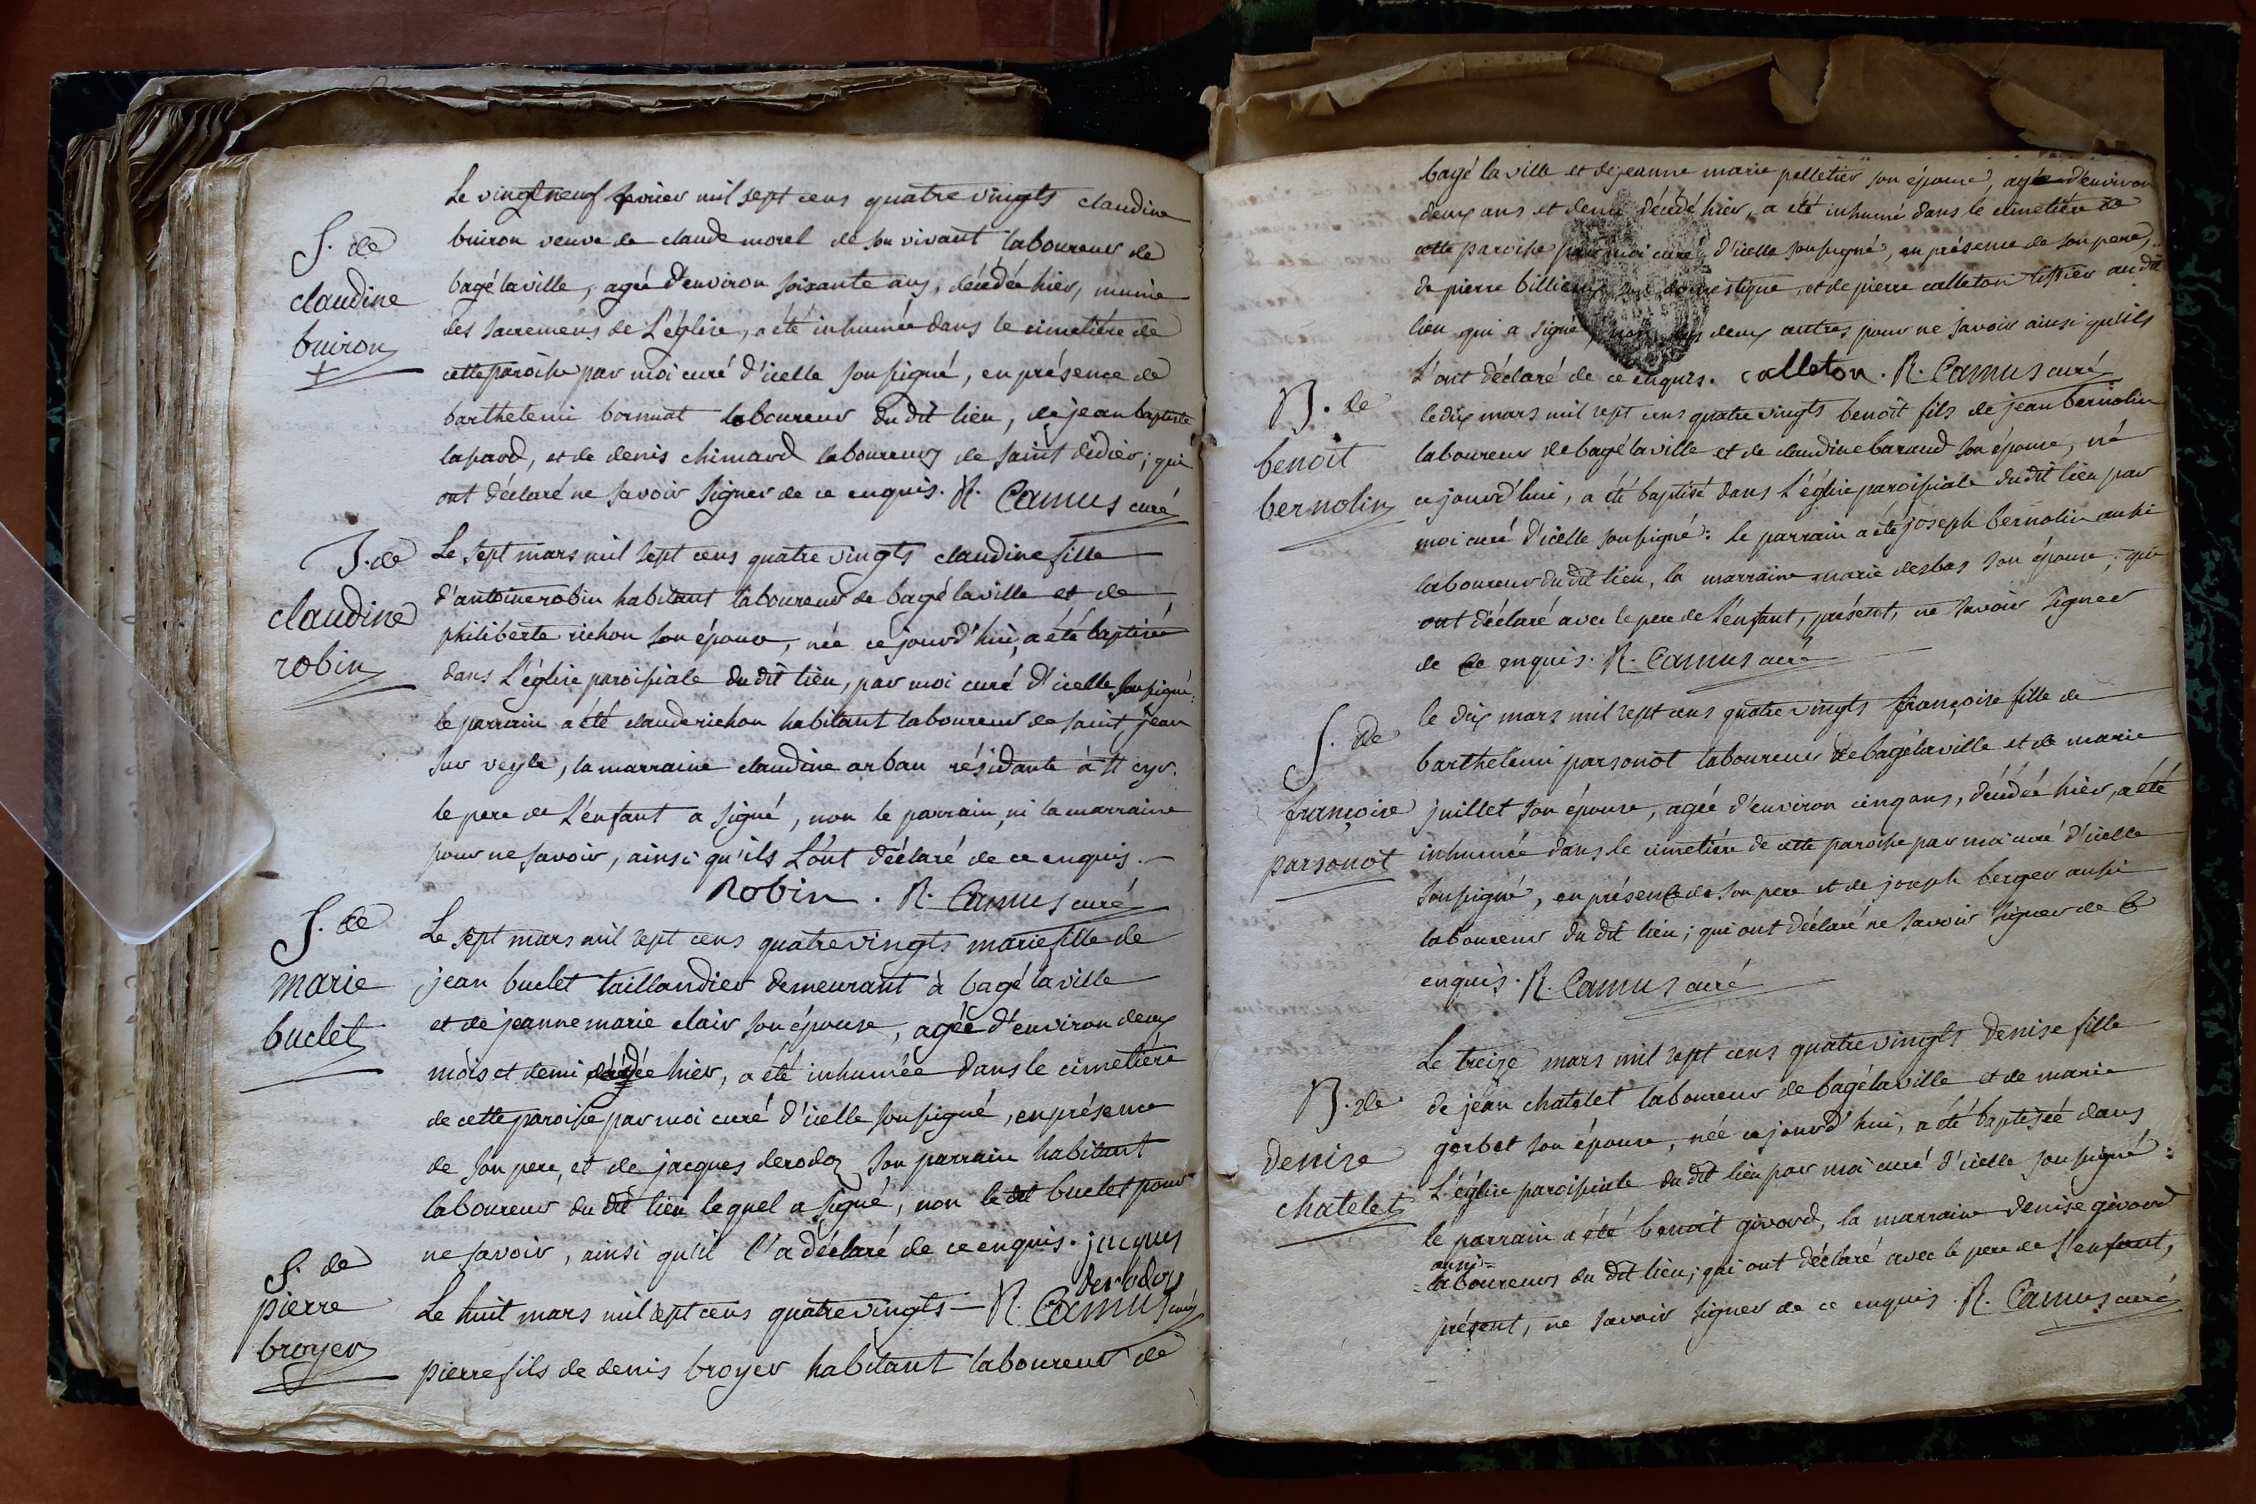 S. de
claudine
buiron
Le vingt neuf fevrier mil sept cens quatre vingts claudine
buiron veuve de claude morel de son vivant laboureur de
bagé la ville, agée d'environ soixante ans, décédée hier, munie
des sacremens de L'église, a été inhumée dans le cimetiére de
cette paroisse par moi curé d'icelle soussigné, en présence de
barthelemi bornuat laboureur du dit lieu, de jean baptiste
lapard, et de denis chimard laboureurs de saint didier; qui
ont déclaré ne savoir signer de ce enquis. R. Camus curé
B. de
claudine
robin
Le sept mars mil sept cens quatre vingts claudine fille
d'antoine robin habitant laboureur de bagé la ville et de
philiberte richon son épouse, née ce jourd'hui, a été baptisée
dans L'église paroissiale du dit lieu, par moi curé d'icelle soussigné:
le parrain a été claude richon habitant laboureur de saint jean
sur veyle, la marraine claudine arban résidante à st cyr.
le pere de L'enfant a signé, non le parrain, ni la marraine
pour ne savoir, ainsi qu'ils L'ont déclaré de ce enquis.
Robin. R. Camus curé
S. de
marie
buclet
Le sept mars mil sept cens quatre vingts marie fille de
jean buclet taillandier demeurant à bagé la ville
et de jeanne marie clair son épouse, agée d'environ deux
mois et demi décédée hier, a été inhumée dans le cimetiére
de cette paroisse par moi curé d'icelle soussigné, en présence
de son pere, et de jacques derodoz son parrain habitant
laboureur du dit lieu lequel a signé, non le dit buclet pour
ne savoir, ainsi qu'il l'a déclaré de ce enquis. jacques
derodoz
S. de
pierre
broyer
Le huit mars mil sept cens quatre vingts — R. Camus curé
pierre fils de denis broyer habitant laboureur de
bagé la ville et de jeanne marie pelletier son épouse, agé d'environ
deux ans et demi décédé hier, a été inhumé dans le cimetiére de
cette paroisse par moi curé d'icelle soussigné, en présence de son pere,
de pierre billien domestique, et de pierre calleton au dit
lieu qui a signé, non les deux autres pour ne savoir ainsi qu'ils
L'ont déclaré de ce enquis. calleton. R. Camus curé
B. de
benoit
bernolin
le dix mars mil sept cens quatre vingts benoit fils de jean bernolin
laboureur de bagé la ville et de claudine baraud son épouse, né
ce jourd'hui, a été baptisé dans L'église paroissiale du dit lieu par
moi curé d'icelle soussigné: le parrain a été joseph bernolin aussi
laboureur du dit lieu, la marraine marie desbas son épouse; qui
ont déclaré avec le pere de L'enfant, présent, ne savoir signer
de ce enquis. R. Camus curé
S. de
françoise
parsonot
le dix mars mil sept cens quatre vingts françoise fille de
barthelemi parsonot laboureur de bagé la ville et de marie
juillet son épouse, agée d'environ cinq ans, décédée hier, a été
inhumée dans le cimetiére de cette paroisse par moi curé d'icelle
soussigné, en présence de son pere et de joseph berger aussi
laboureur du dit lieu; qui ont déclaré ne savoir signer de ce
enquis. R. Camus curé
B. de
denise
chatelet
Le treize mars mil sept cens quatre vingts denise fille
de jean chatelet laboureur de bagé la ville et de marie
gerbet son épouse, née ce jourd'hui, a été baptisée dans
L'église paroissiale du dit lieu par moi curé d'icelle soussigné:
le parrain a été benoit givord, la marraine denise givord
aussi
laboureurs du dit lieu; qui ont déclaré avec le pere de L'enfant,
présent, ne savoir signer de ce enquis. R. Camus curé